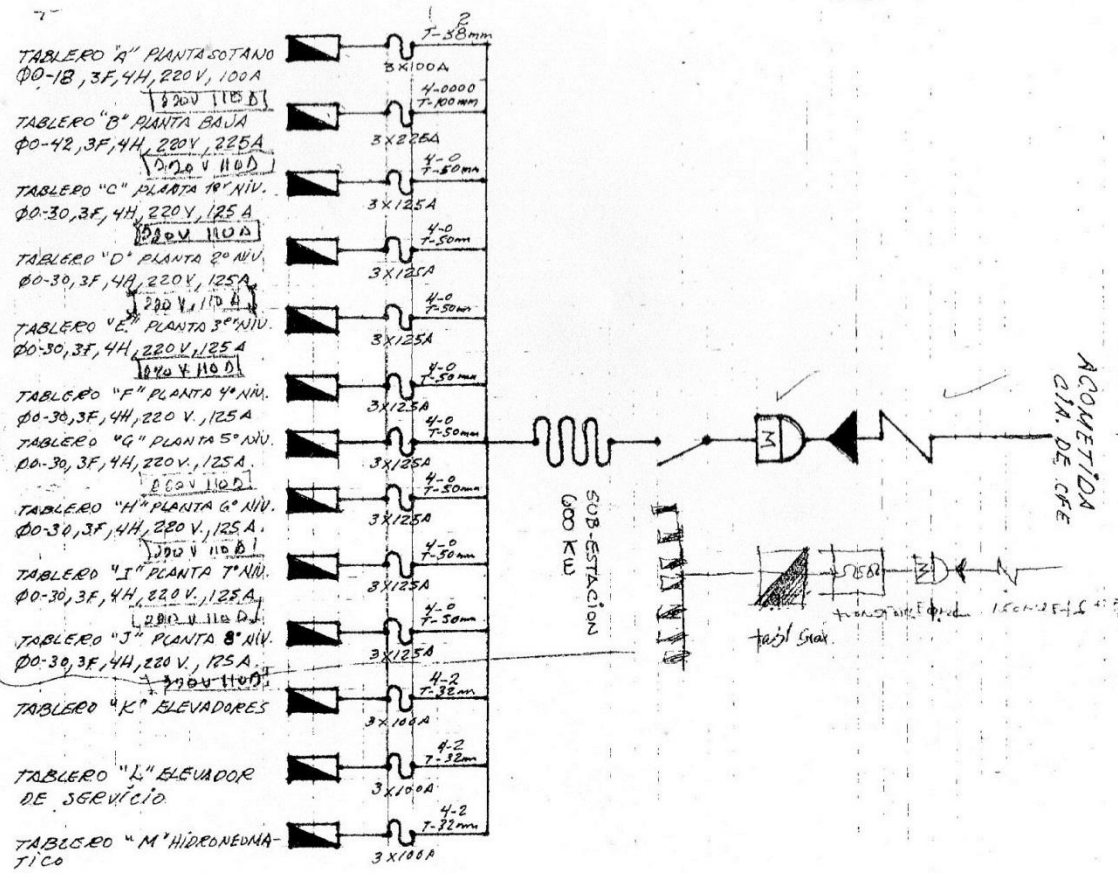 TABLERO "A" PLANTA SOTANO
QO-18, 3F, 4H, 220 V, 100A
220V 110 D
TABLERO "B" PLANTA BAJA
QO-42, 3F, 4H, 220V, 225A
220 V 110 D
TABLERO "C" PLANTA 1er NIV.
QO-30, 3F, 4H, 220V, 125 A
220V 110 D
TABLERO "D" PLANTA 2º NIV.
QO-30, 3F, 4H, 220V, 125A
220 V, 110 A
TABLERO "E" PLANTA 3er NIV.
QO-30, 3F, 4H, 220V, 125 A
220 V 110 D
TABLERO "F" PLANTA 4º NIV.
QO-30, 3F, 4H, 220 V., 125A
TABLERO "G" PLANTA 5º NIV.
QO-30, 3F, 4H, 220 V., 125 A.
220V 110 D
TABLERO "H" PLANTA 6º NIV.
QO-30, 3F, 4H, 220 V., 125 A.
220V 110 D
TABLERO "I" PLANTA 7º NIV.
QO-30, 3F, 4H, 220 V., 125 A
220V 110 D
TABLERO "J" PLANTA 8º NIV.
QO-30, 3F, 4H, 220 V., 125 A.
220V 110 D
TABLERO "K" ELEVADORES
TABLERO "L" ELEVADOR
DE SERVICIO
TABLERO "M" HIDRONEUMA-
TICO
2
T-38mm
3X100A
4-0000
T-100mm
3X225A
4-0
T-50mm
3X125A
4-0
T-50mm
3X125A
4-0
T-50mm
3X125A
4-0
T-50mm
3X125A
4-0
T-50mm
3X125A
4-0
T-50mm
3X125A
4-0
T-50mm
3X125A
4-0
T-50mm
3X125A
4-2
T-32mm
3X100A
4-2
T-32mm
3X100A
4-2
T-32mm
3X100A
SUB-ESTACION
600 KW
M
ACOMETIDA
CIA. DE CFE
M